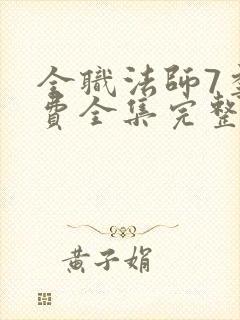 全職法師7
費全集完整
黃子娟